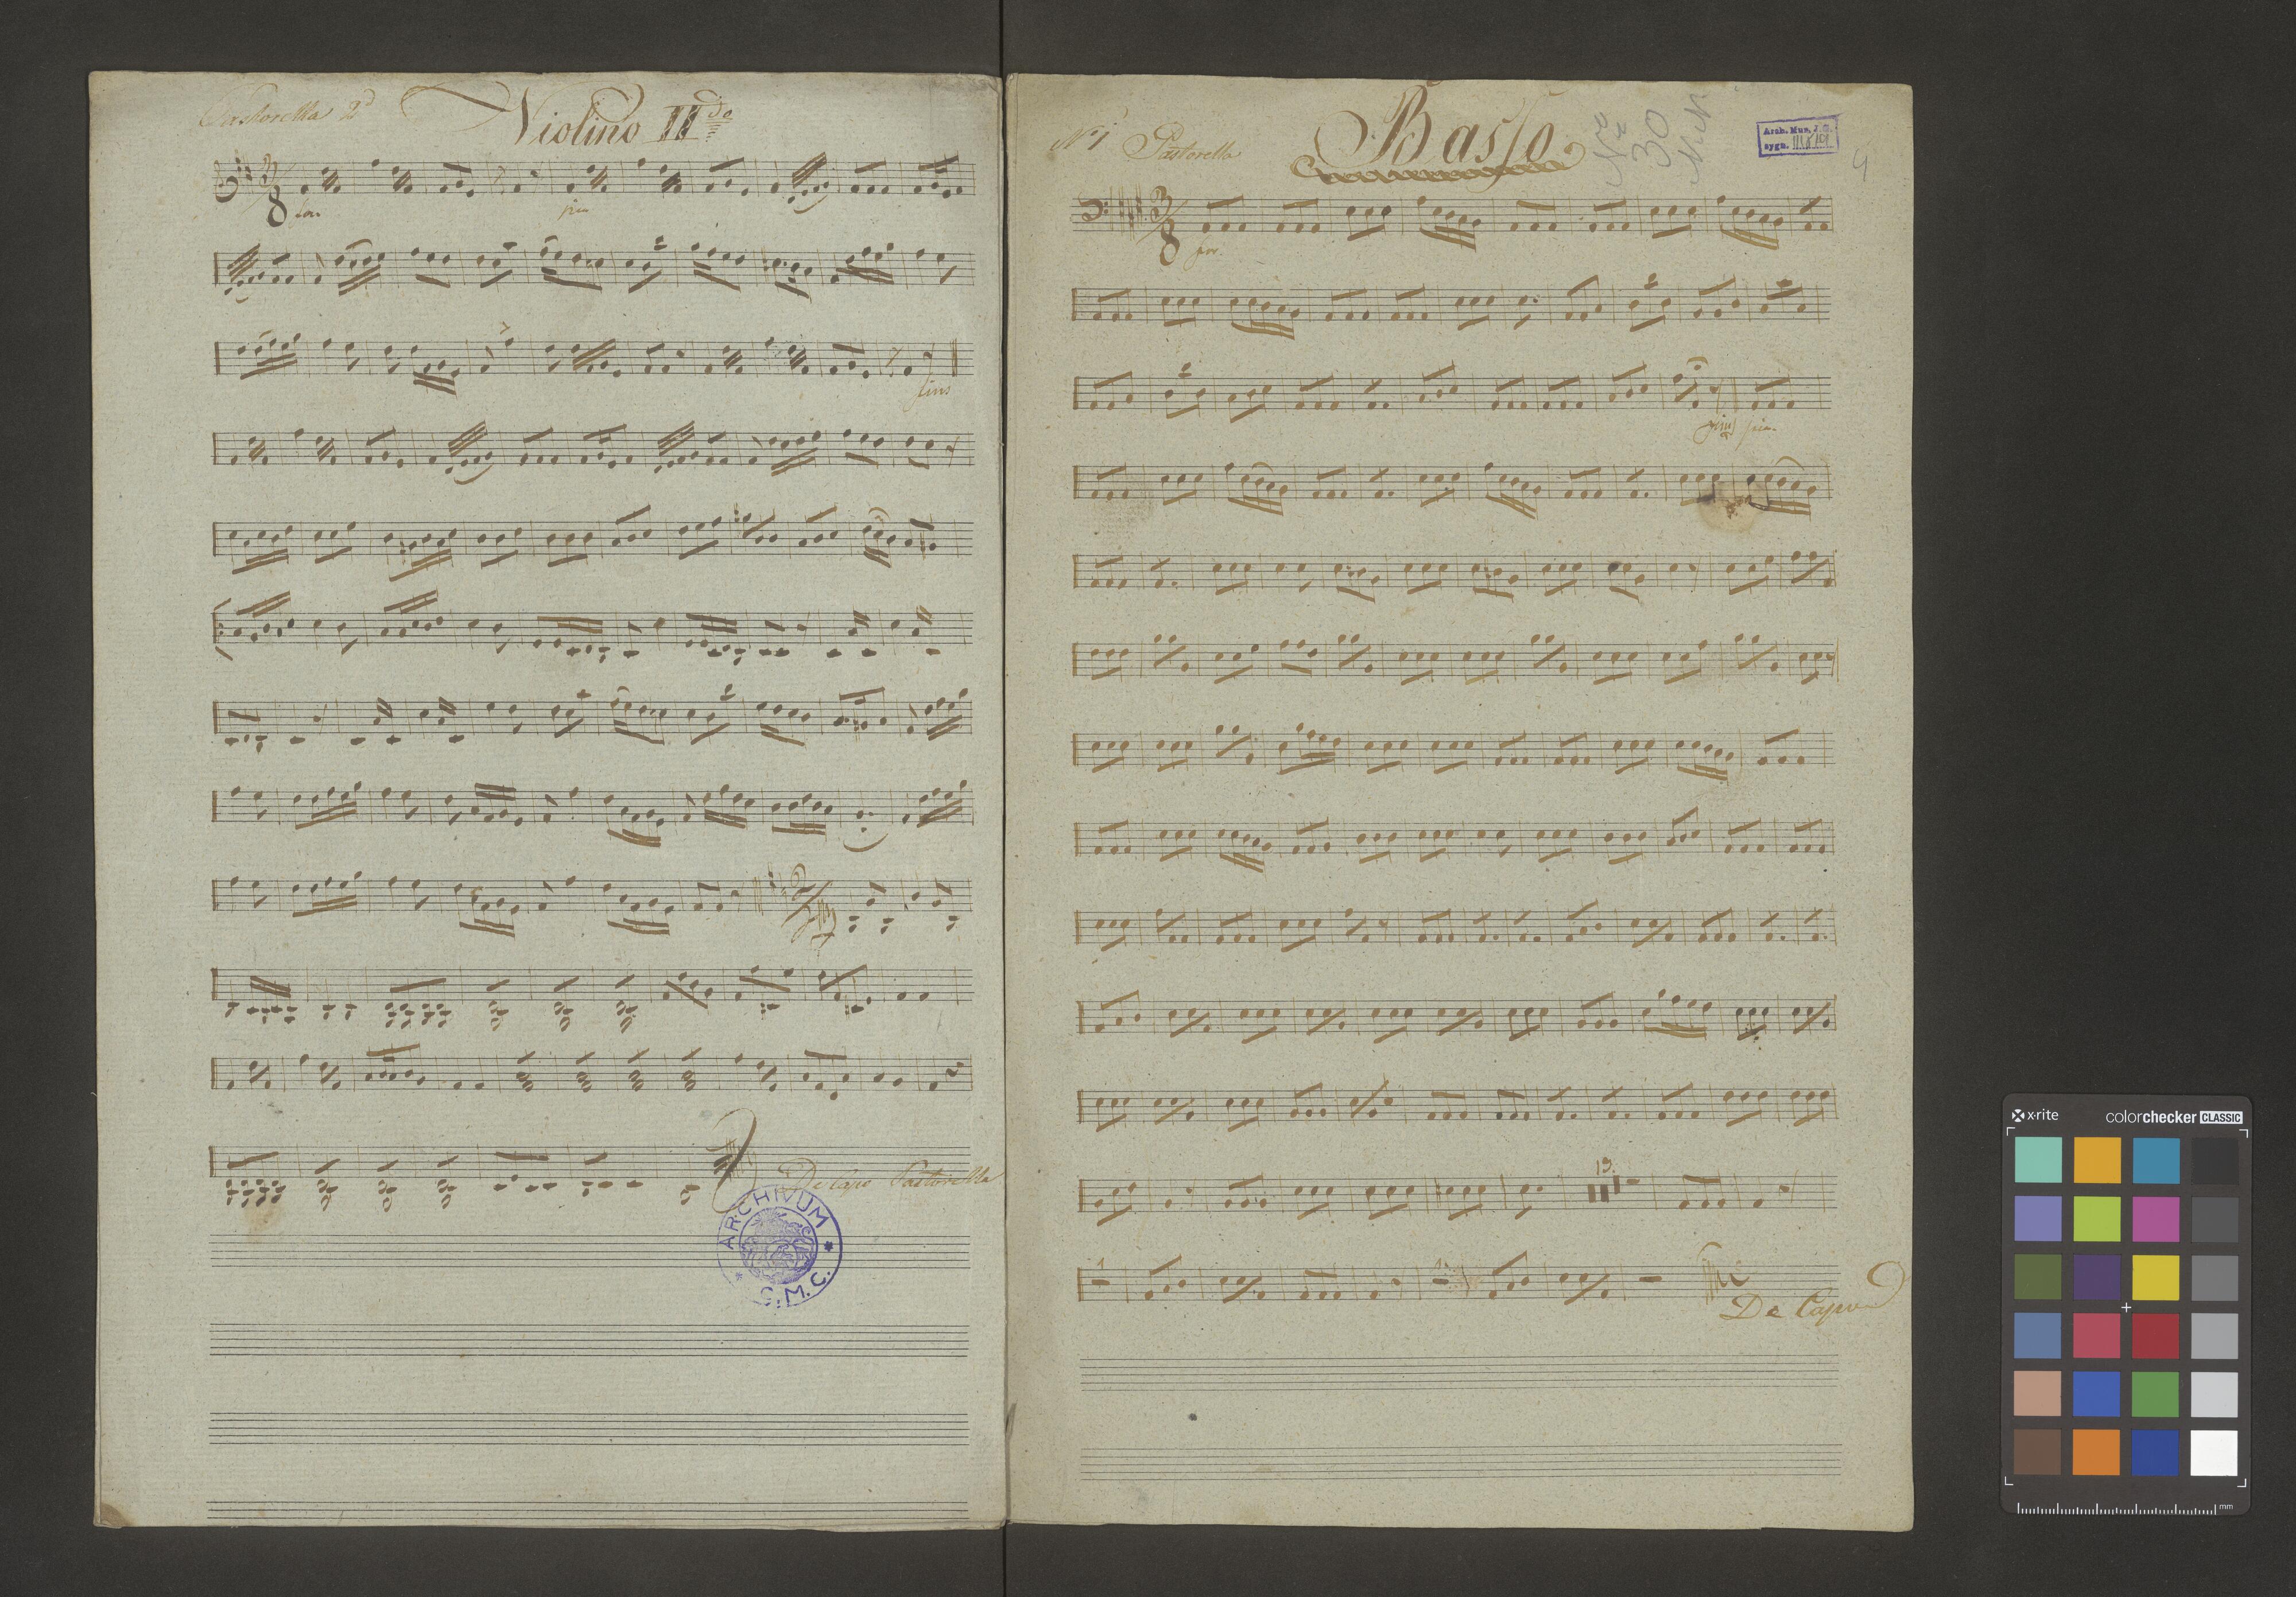 Pastorella 2d
Violino IIdo
3/8
for.
pia
fine
De Capo Pastorella
ARCHIVUM
C. M. C.
No 1
Pastorella
Basso
No
30
Arch. Mus. J. G.
sygn.
4
3/8
for.
fine
pia.
19.
1
De Capo
x-rite
colorchecker CLASSIC
mm